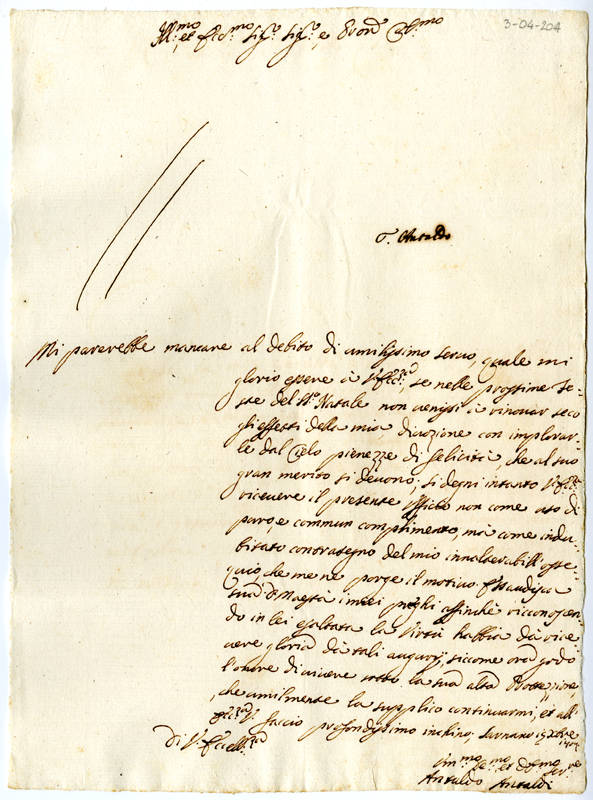 3-04-204
Ill.mo et Ecc.mo Sig.r Sig.r, e Pron Col.mo
Antaldo
Mi parerebbe mancare al debito di umilissimo servo, quale mi
glorio essere à V. Ecc.za se nelle prossime fe-
ste del S.to Natale non venissi à rinovar seco
gli effetti della mia divozione con implorar-
le dal Cielo pienezze di felicità, che al suo
gran merito si devono; si degni intanto V. Ecc.za
ricevere il presente officio non come atto di
puro, e commun complimento, mà come indu-
bitato contrasegno del mio inalterabill' osse-
quio, che me ne porge il motivo. Essaudisca
Sua D. Maestà i miei prieghi affinchè riconoscen-
do in lei esaltata la Virtù habbia dà rice-
vere gloria dà tali augurj, siccome orà godo
l'onore di vivere sotto la sua alta Protezione,
che umilmente la supplico continuarmi, et all'
Ecc.za V. faccio profondissimo inchino,
Di V. Eccell.za
Um.mo et Ser.re
Antaldo Antaldi